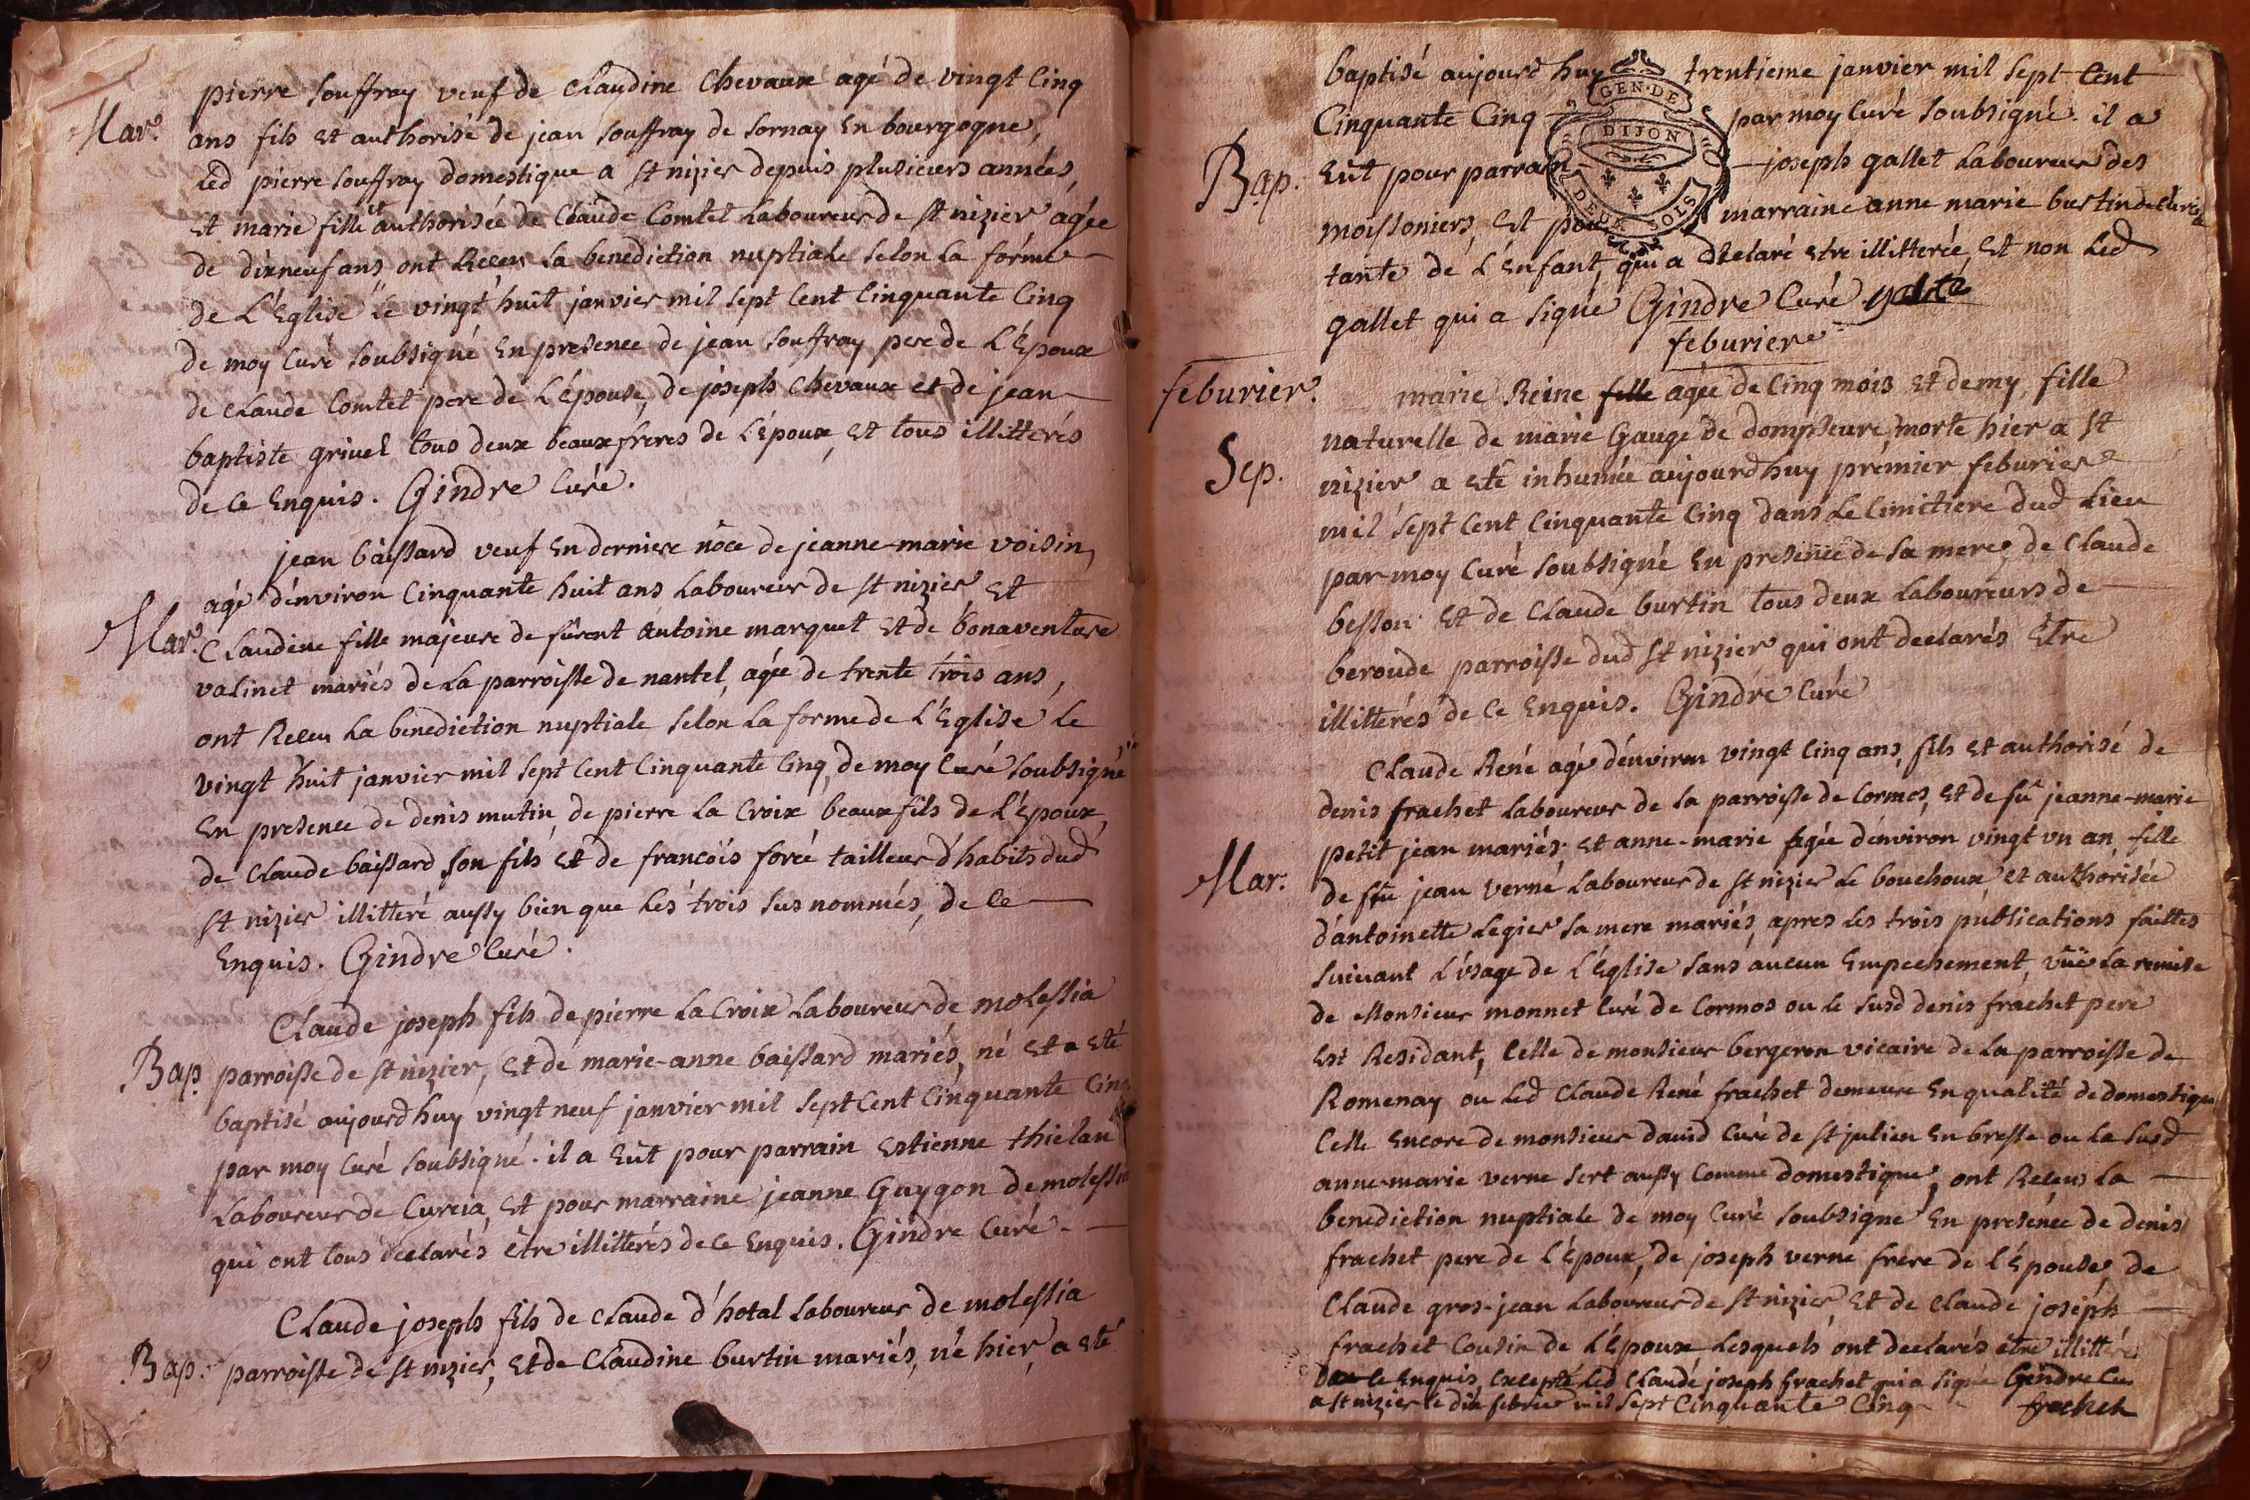 pierre souffray veuf de Claudine Chevaux agé de vingt cinq
Mar.
ans fils et authorisé de jean souffray de sornay en bourgogne,
led pierre souffray domestique a st nizier depuis plusieurs années,
et marie fille et authorisée de Claude Comtet Laboureur de st nizier agée
de dixneuf ans ont Receu La benediction nuptiale selon La forme
de L'Eglise Le vingt huit janvier mil sept Cent Cinquante Cinq
de moy Curé soubsigné En presence de jean souffray pere de L'Époux
de Claude Comtet pere de L'épouse, de joseph Chevaux et de jean
baptiste grivel tous deux beaux freres de L'époux, et tous illitterés
de Ce Enquis. Gindre Curé.
jean baissard veuf En derniere nôce de jeanne-marie voisin,
agé d'énviron Cinquante huit ans Laboureur de st nizier et
Mar.
Claudine fille majeure de furent Antoine marquet et de bonaventure
valinet mariés de La parroisse de nantel, agée de trente trois ans,
ont Receu La benediction nuptiale selon La forme de L'Eglise Le
vingt huit janvier mil sept Cent Cinquante Cinq, de moy Curé soubsigné
En presence de denis mutin, de pierre La Croix beaux fils de L'Époux,
de Claude baissard son fils et de francois forcé tailleur d'habits dud
st nizier illitteré aussy bien que Les trois sus nommés, de Ce
Enquis. Gindre Curé.
Claude joseph fils de pierre La Croix Laboureur de molessia
Bap.
parroisse de st nizier, et de marie-anne baissard mariés, né et a eté
baptisé aujourdhuy vingt neuf janvier mil sept Cent Cinquante Cinq
par moy Curé soubsigné. il a Eût pour parrain Estienne thielan
Laboureur de Curcia, et pour marraine jeanne Guygon de molessia
qui ont tous declarés être illitterés de Ce Enquis. Gindre Curé.
Claude joseph fils de Claude d'hotal Laboureur de molessia
Bap.
parroisse de st nizier, et de Claudine burtin mariés, né hier, a eté
baptisé aujourd huy trentieme janvier mil sept Cent
GEN. DE
Cinquante Cinq par moy Curé soubsigné. il a
DIJON
Bap.
Eût pour parrain joseph gallet Laboureur des
DEUX SOLS
moissoniers, et pour marraine anne marie burtin
tante de L'Enfant, qui a declaré etre illitterée, et non Led
gallet qui a signé Gindre Curé
feburier
feburier.
marie Reine felle agée de Cinq mois et demy, fille
naturelle de marie Gauge de dompseure, morte hier a st
Sep.
nizier a eté inhumée aujourdhuy premier feburier
mil sept Cent Cinquante Cinq dans Le Cimitiere dud Lieu
par moy Curé soubsigné En presence de sa mere, de Claude
besson et de Claude burtin tous deux Laboureurs de
beroude parroisse dud st nizier qui ont declarés être
illitterés de Ce Enquis. Gindre Curé
Claude René agé d'énviron vingt Cinq ans, fils et authorisé de
denis frachet Laboureur de La parroisse de Cormos, et de fû jeanne-marie
petit jean mariés: et anne-marie agée d'énviron vingt vn an, fille
Mar.
de fû jean verné Laboureur de st nizier Le bouchoux, et authorisée
d'antoinette Legier sa mere mariés, apres Les trois publications faittes
suivant L'vsage de L'Eglise sans aucun Empechement, vûe La remise
de Monsieur monnet Curé de Cormos ou Le susd denis frachet pere
Est Residant, Celle de monsieur bergeron vicaire de La parroisse de
Romenay ou Led Claude René frachet demeure En qualité de domestique
Celle Encore de monsieur david Curé de st julien En bresse ou La susd
anne-marie verne sert aussy Comme domestique, ont Receus La
benediction nuptiale de moy Curé soubsigné En presence de denis
frachet pere de L'Époux, de joseph verne frere de L'Épouse, de
Claude gros-jean Laboureur de st nizier et de Claude joseph
frachet Cousin de L'Époux Lesquels ont declarés être illitterés
de Ce Enquis, Excepté Led Claude joseph frachet qui a signé Gindre Cu
a st nizier Le dix febrier mil sept Cinquante Cinq
frachet